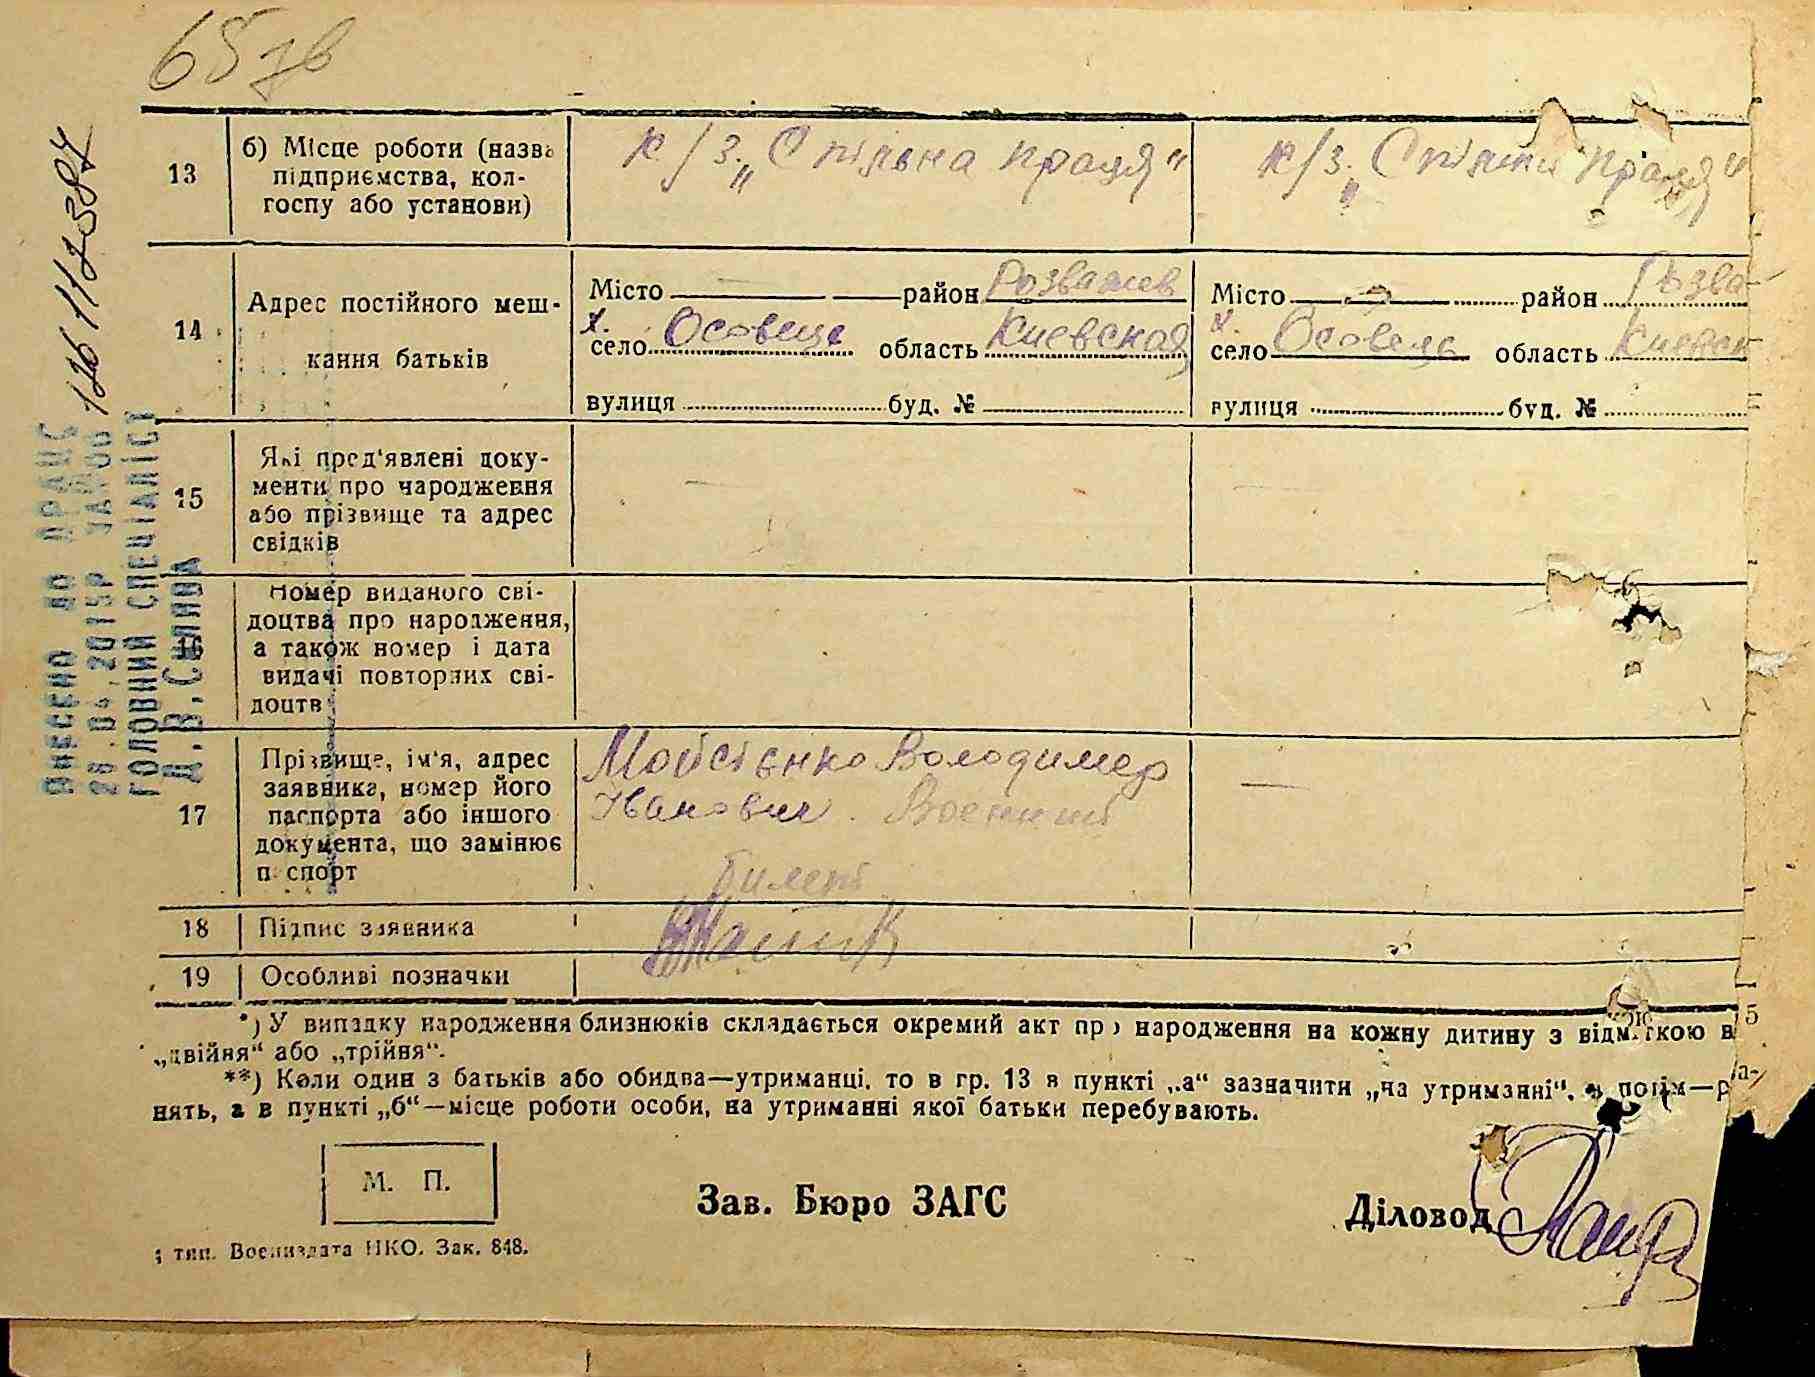 65 зв
126 117 387
ВНЕСЕНО ДО ДРАЦС
28.04.2015Р
ГОЛОВНИЙ СПЕЦІАЛІСТ
Д.В.
13 б) Місце роботи (назва підприємства, кол-
госпу або установи)
к/з. „Спільна праця"
к/з. „Спільна праця"
14 Адрес постійного меш-
кання батьків
Місто район Розважев
х. село Осовець область Киевская
вулиця буд. №
Місто район Розва-
х. село Осовець область Киевск
вулиця буд. №
15 Які пред'явлені доку-
менти про народження
або прізвище та адрес
свідків
16 Номер виданого сві-
доцтва про народження,
а також номер і дата
видачі повторних сві-
доцтв
17 Прізвище, ім'я, адрес
заявника, номер його
паспорта або іншого
документа, що замінює
паспорт
Мойсієнко Володимер
Іванович. Военний
билет
18 Підпис заявника
19 Особливі позначки
*) У випадку народження близнюків складається окремий акт про народження на кожну дитину з відміткою в
„двійня" або „трійня".
**) Коли один з батьків або обидва—утриманці, то в гр. 13 в пункті „а" зазначити „на утриманні",
нять, а в пункті „б"—місце роботи особи, на утриманні якої батьки перебувають.
М. П.
Зав. Бюро ЗАГС
Діловод
тип. Воениздата НКО. Зак. 848.